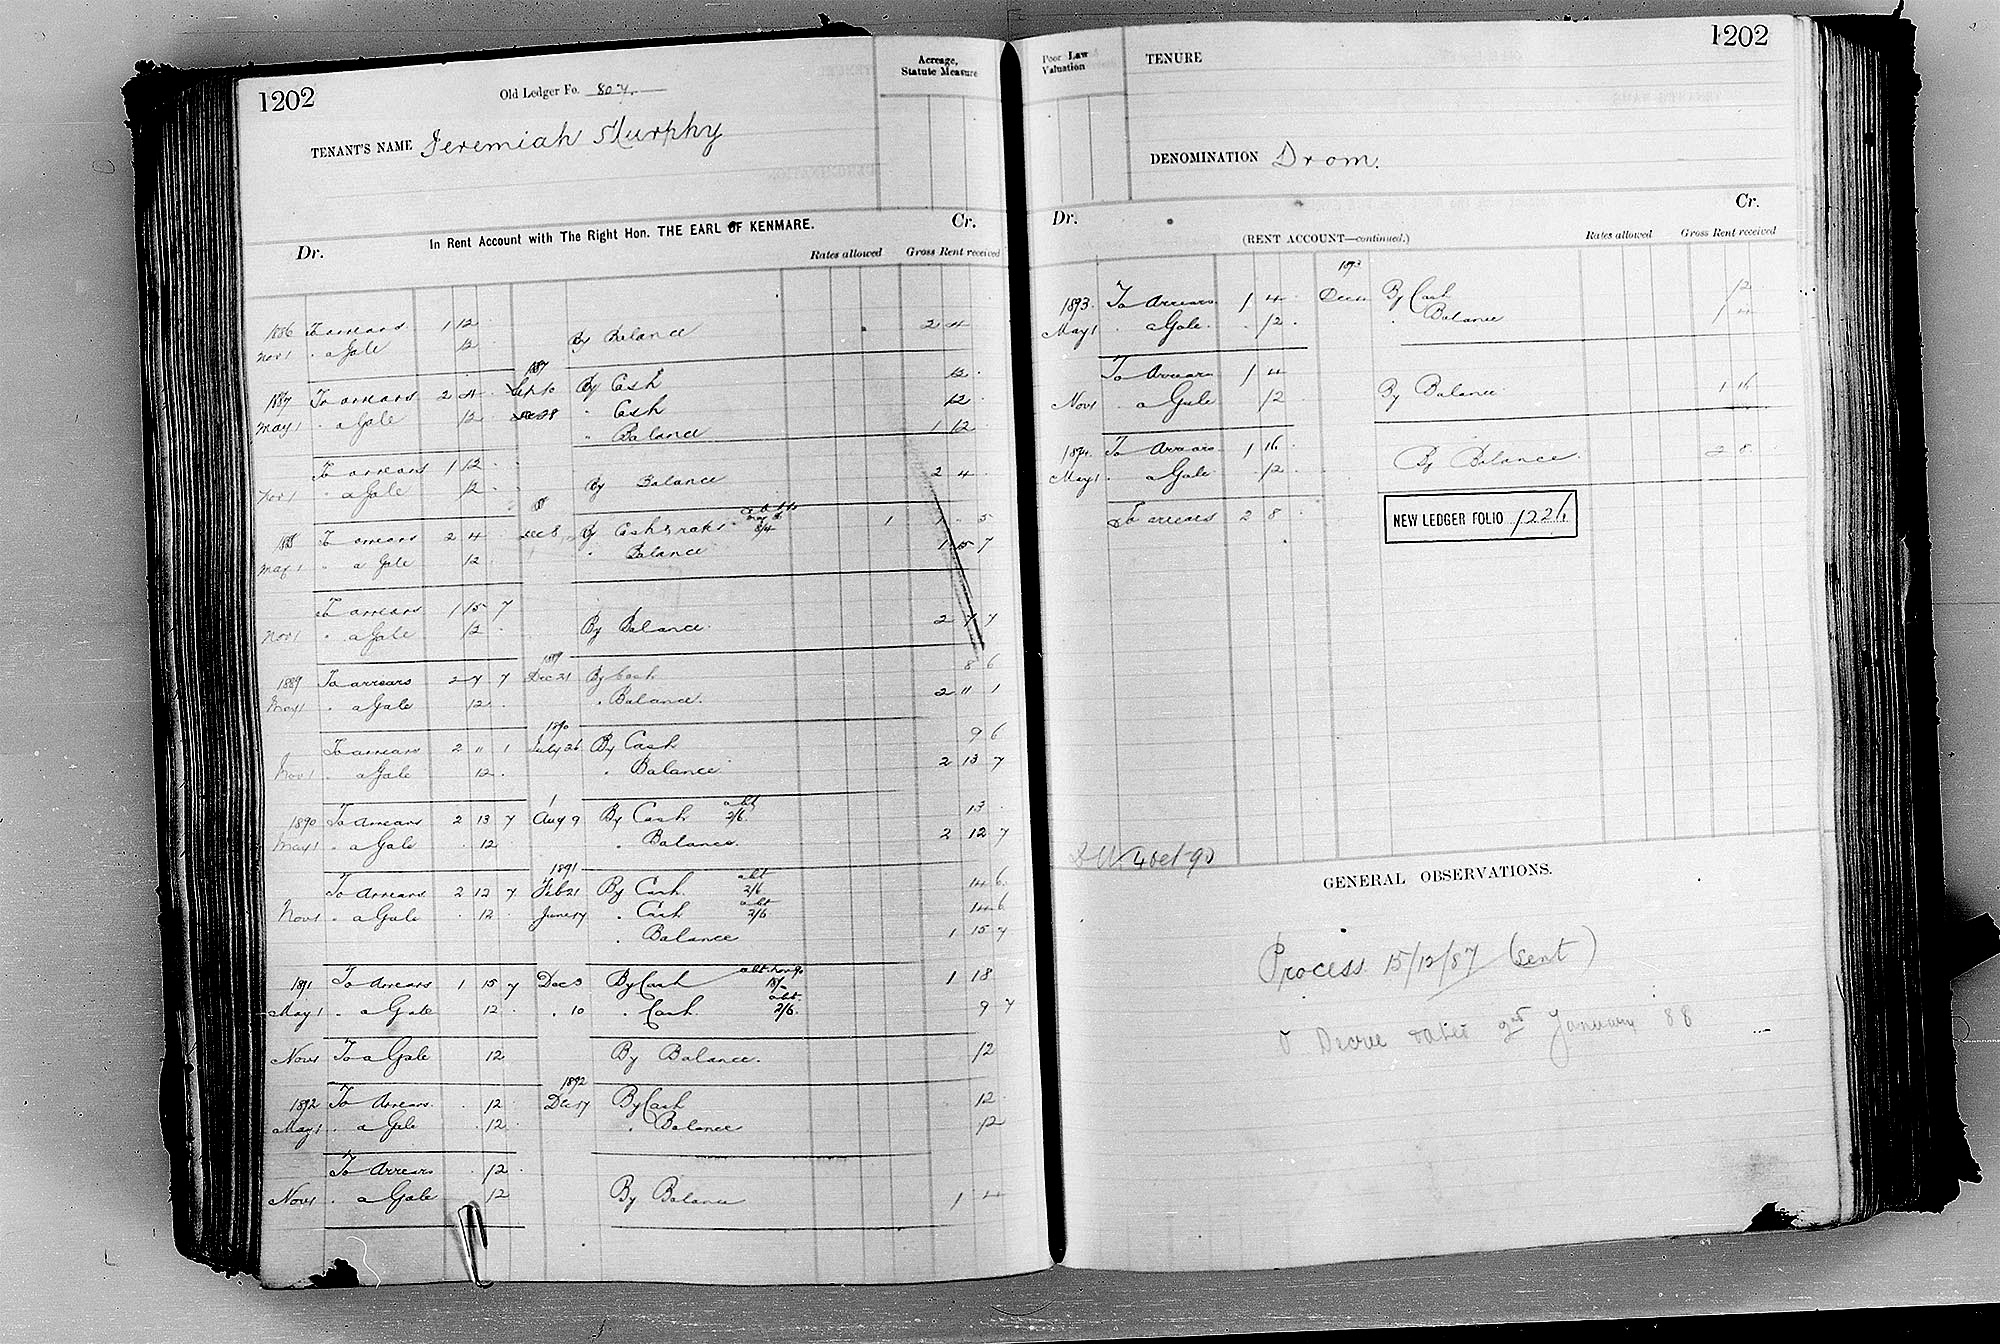 1202
Old Ledger Fo. 807.
Acreage, Statute Measure
TENANT'S NAME Jeremiah Murphy
In Rent Account with The Right Hon. THE EARL OF KENMARE.
Dr. Cr.
Rates allowed Gross Rent received
1886 To arrears 1 12
Nov 1 " a Gale 12 By Balance 2 4
1887
1887 To arrears 2 4 Sept 10 By Cash 12
May 1 " a Gale 12 Dec 28 " Cash 12
" Balance 1 12
To arrears 1 12
Nov 1 " a Gale 12 By Balance 2 4
1888 To arrears 2 4 Dec 8 By Cash & rates 8/4 1 1 - 5
May 1 " a Gale 12 " Balance 1 15 7
To arrears 1 15 7
Nov 1 " a Gale 12 By Balance 2 7 7
1889
1889 To arrears 2 7 7 Dec 21 By Cash 8 6
May 1 " a Gale 12 " Balance 2 11 1
1890
To arrears 2 11 1 July 26 By Cash 9 6
Nov 1 " a Gale 12 " Balance 2 13 7
1890 To Arrears 2 13 7 Aug 9 By Cash abt 2/6 13
May 1 " a Gale 12 " Balance 2 12 7
1891
To Arrears 2 12 7 Feb 21 By Cash abt 2/6 14 6
Nov 1 " a Gale 12 June 17 " Cash abt 2/6 14 6
" Balance 1 15 7
1891 To Arrears 1 15 7 Dec 3 By Cash abt Nov 90 18/- 1 18
May 1 " a Gale 12 " 10 " Cash abt. 2/6. 9 7
Nov 1 To a Gale 12 By Balance. 12
1892
1892 To Arrears. 12 Dec 17 By Cash 12
May 1 " a Gale 12 " Balance 12
To Arrears 12
Nov 1 " a Gale 12 By Balance 1 4
1202
Poor Law Valuation
TENURE
DENOMINATION Drom.
Dr. Cr.
(RENT ACCOUNT—continued.)
Rates allowed Gross Rent received
1893
1893. To Arrears 1 4 Dec By Cash 12
May 1 " a Gale. 12 " Balance 1 4
To Arrears 1 4
Nov 1 " a Gale 12 By Balance 1 16
1894. To Arrears 1 16
May 1 " a Gale 12 By Balance. 2 8
To arrears 2 8
NEW LEDGER FOLIO 1226
4 Oct 90
GENERAL OBSERVATIONS.
Process 15/12/87 (sent)
Decree dated January 88